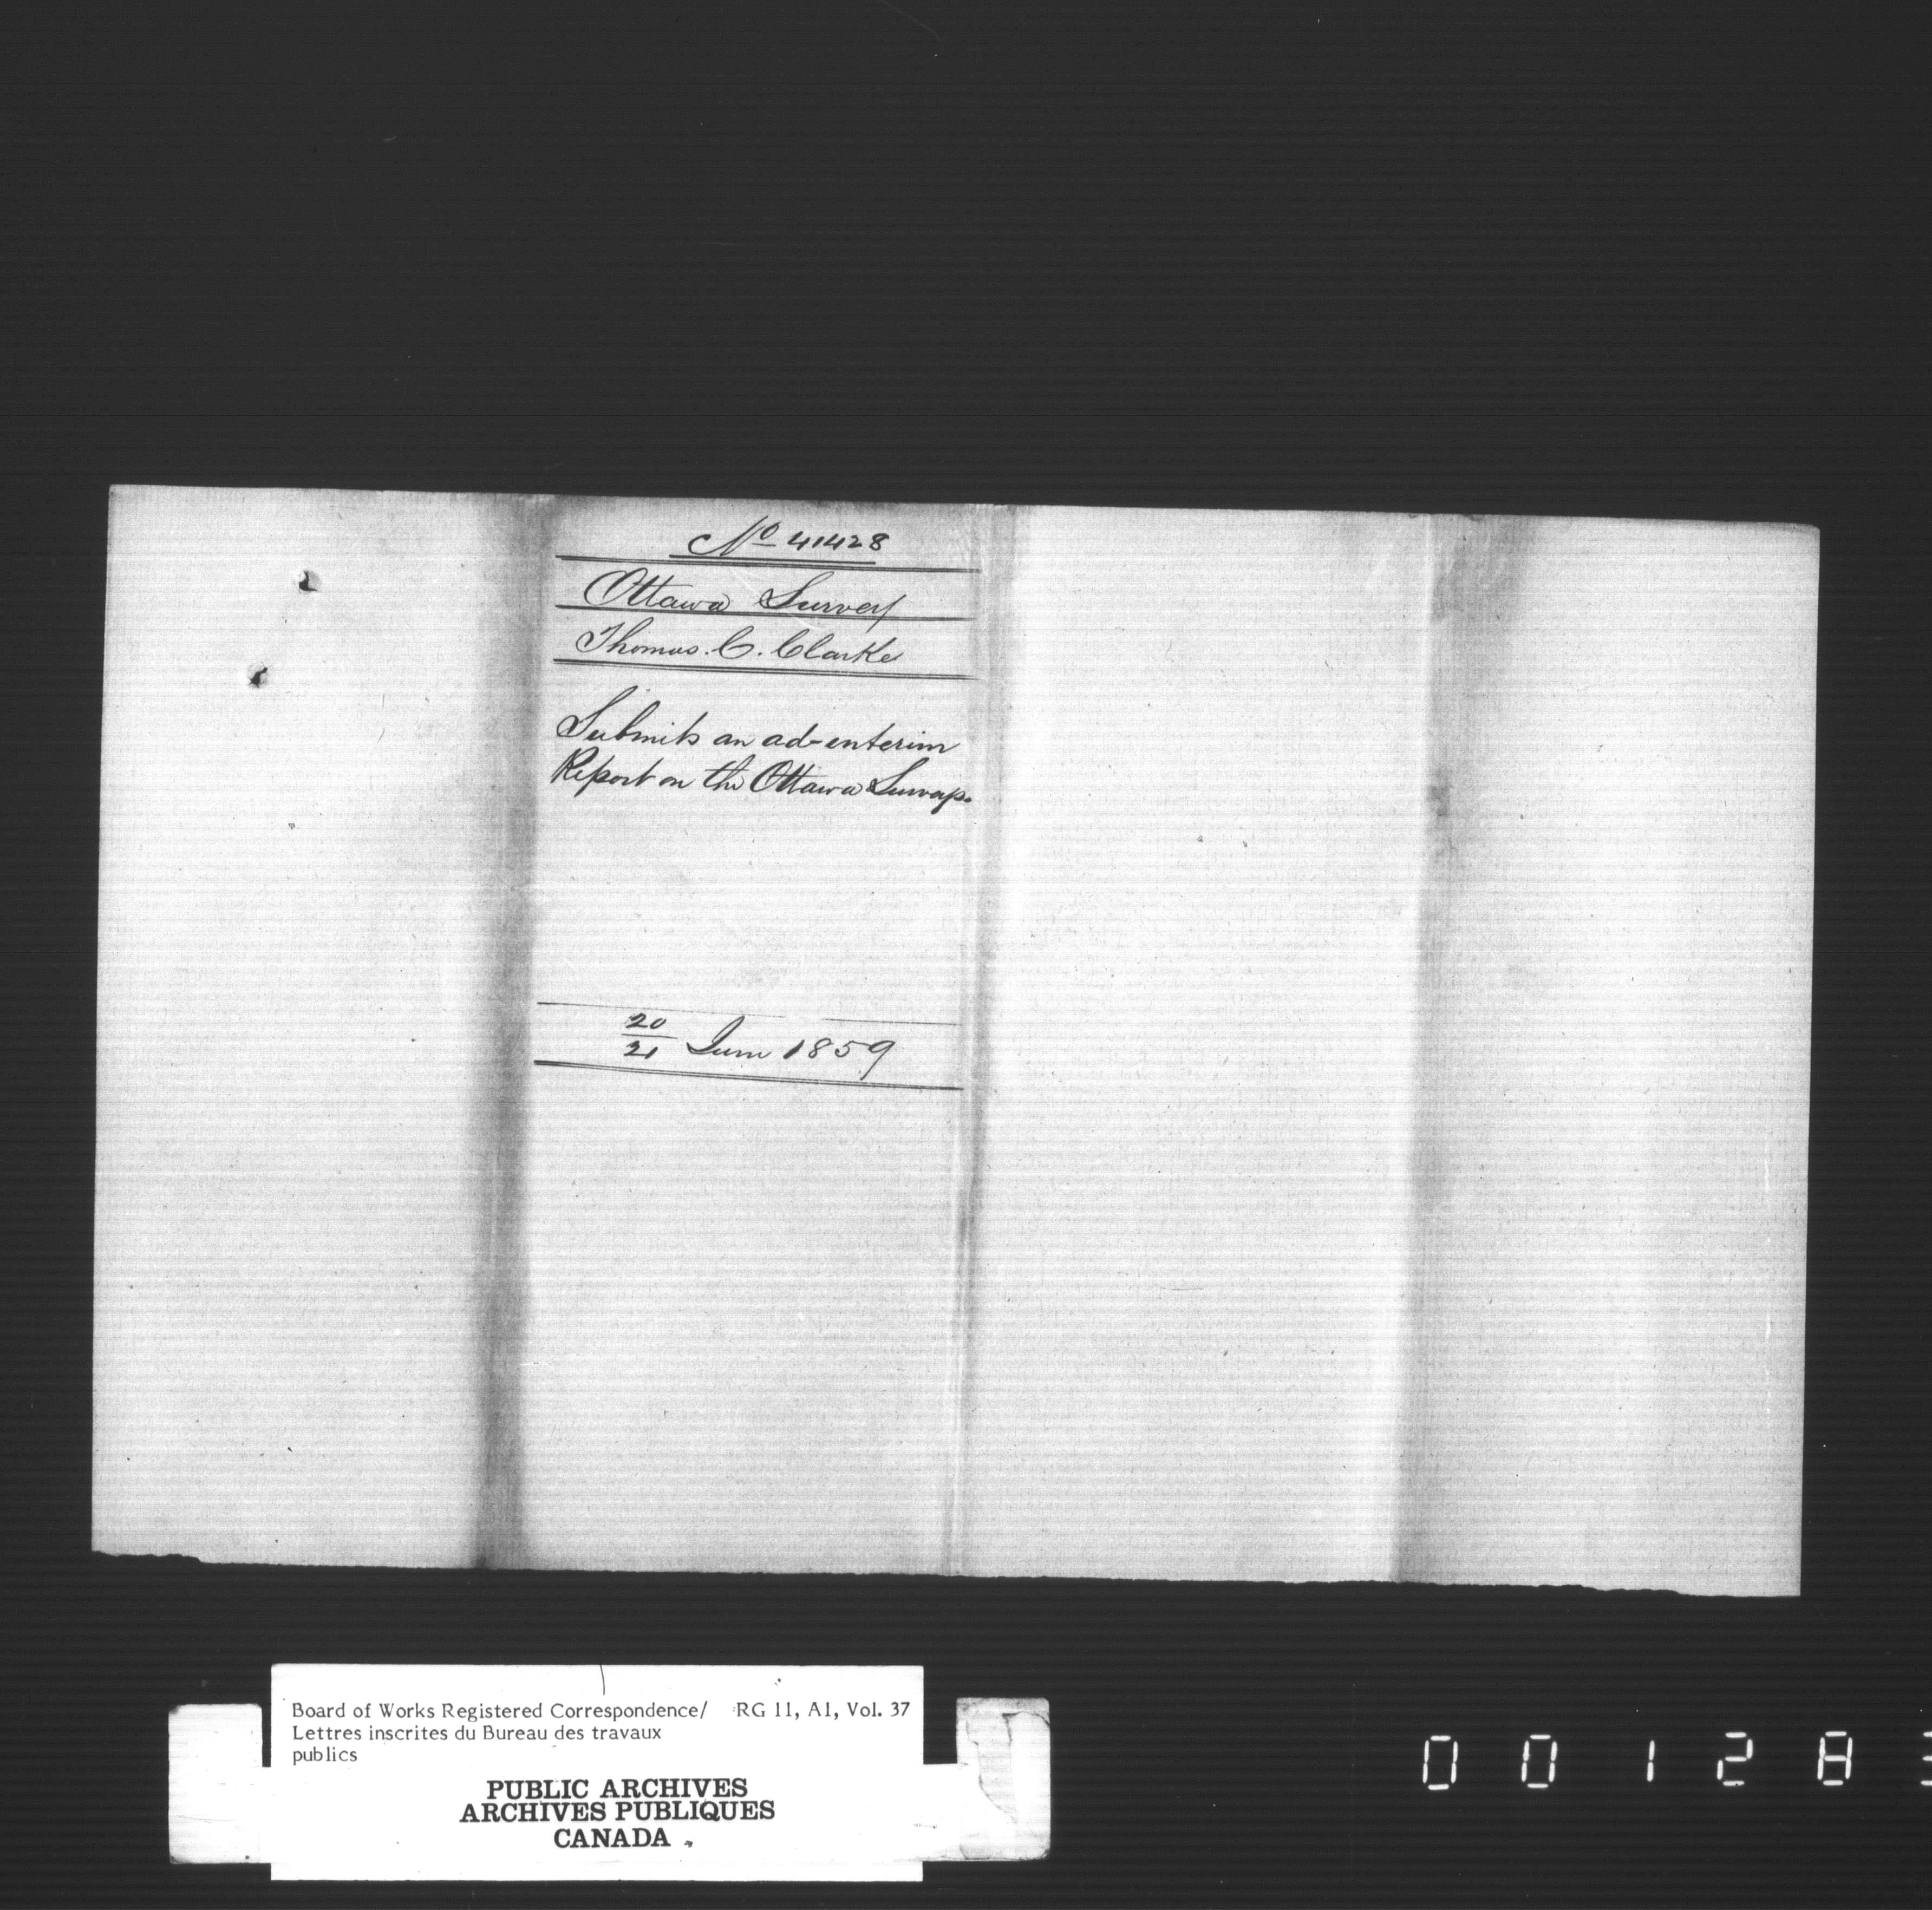 No 41428
Ottawa Survey
Thomas. C. Clarke
Submits an ad-enterim
Report on the Ottawa Survey.
20
21 June 1859
Board of Works Registered Correspondence/ RG 11, A1, Vol. 37
Lettres inscrites du Bureau des travaux
publics
PUBLIC ARCHIVES
ARCHIVES PUBLIQUES
CANADA
00128